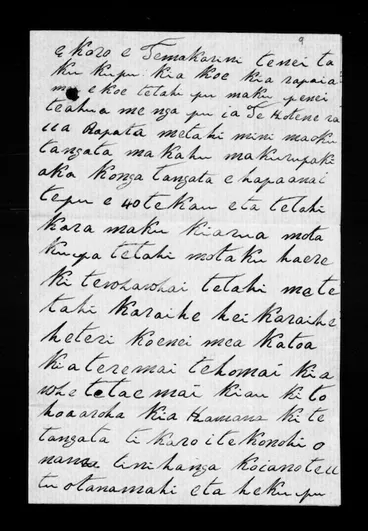 9
e Karo e Temakarini tenei ta
ku kupu kia koe kia rapaia
mai e koe tetahi pu maku penei
teahua me nga pu ia Te Hotene ra
ua Rapata metahi mini maoku
tangata ma kahu makurupaki
aka Konga tangata e hapaanai
tepu e 40 tekau eta tetahi
Kara maku kiarua mota
kuupa tetahi motaku haere
ki tewhawhai tetahi mate
tahi karaihe hei karaihe
heteri koenei mea katoa
kiateremai tehomai kia
whe tetae mai kiau ki to
hoaaroha kia Hamana ki te
tangata ti karo i te konohi o
tinihanga koianoteu
tu otanamahi eta heku pu